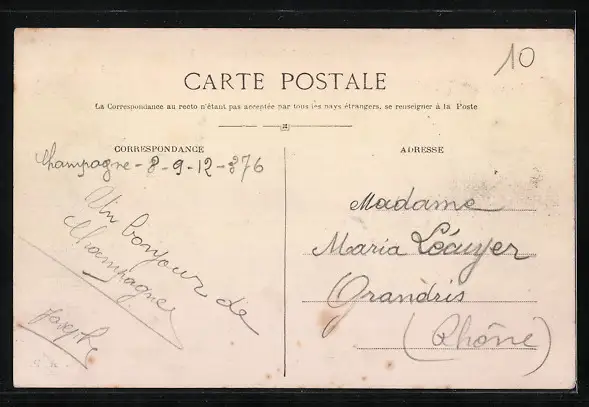 10
CARTE POSTALE
La Correspondance au recto n'étant pas acceptée par tous les pays étrangers, se renseigner à la Poste
CORRESPONDANCE
Champagne - 8-9-12-376
Un bonjour de
Champagne
Joseph
ADRESSE
Madame
Maria Léauyer
Grandris
(Rhône)